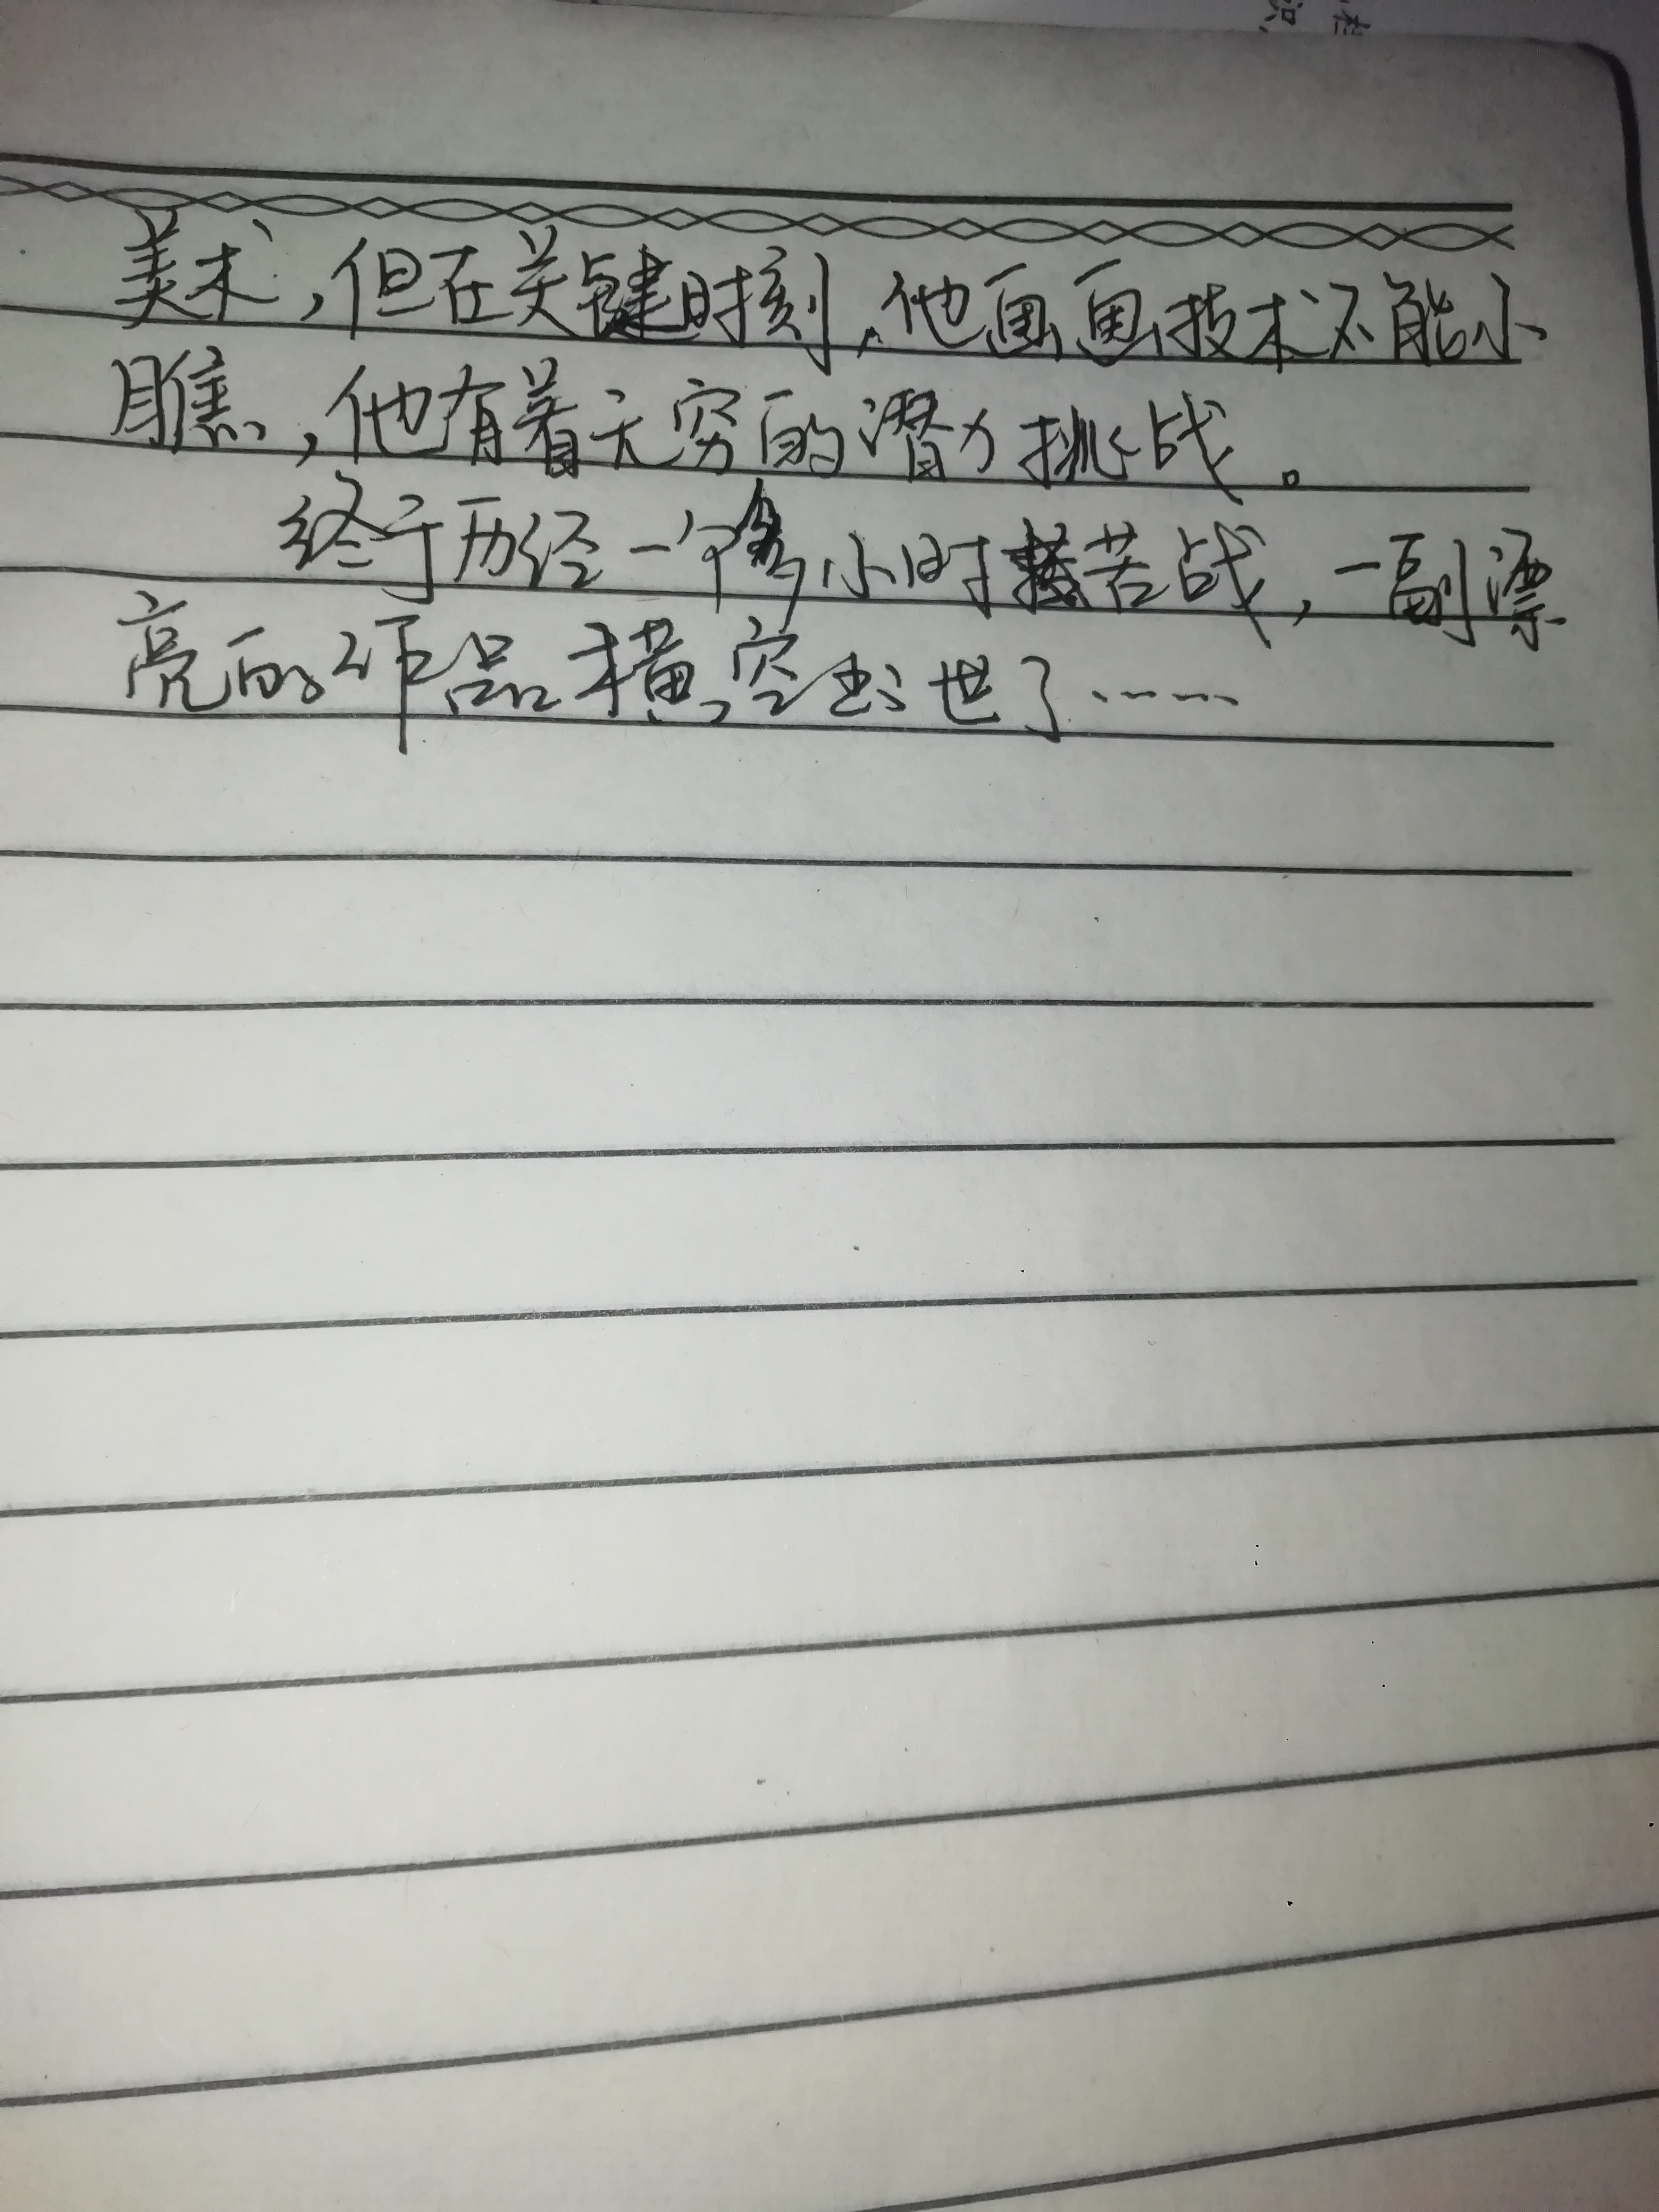 美术，但在关键时刻，他画画技术不能小
瞧，他有着无穷的潜力挑战。
终于历经一个多小时苦战，一副漂
亮的作品横空出世了……